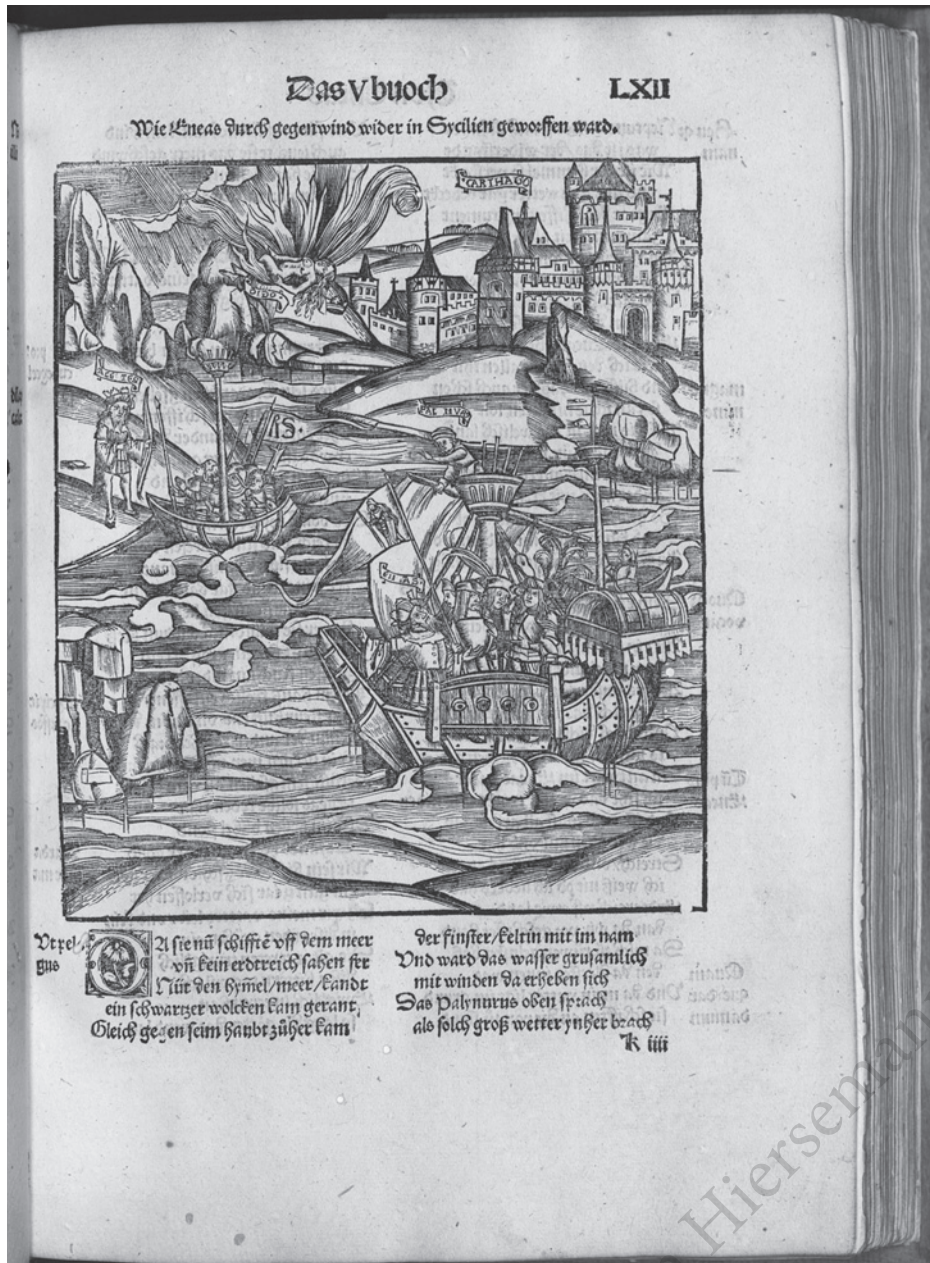 Das V buoch LXII
Wie Eneas durch gegenwind wider in Sycilien geworffen ward.
CARTHAGO
DIDO
PAL NVR
EN AS
Vt pel/
gus
DA sie nu̅ schiffte̅ vff dem meer
vn̅ kein erdtreich sahen fer
Nüt den hym̅el/meer/kandt
ein schwartzer wolcken kam gerant,
Gleich gegen seim haubt zůher kam
der finster/keltin mit im nam
Vnd ward das wasser grusamlich
mit winden da erheben sich
Das Palynurus oben sprach
als solch groß wetter ynher brach
K iiii
Hierseman